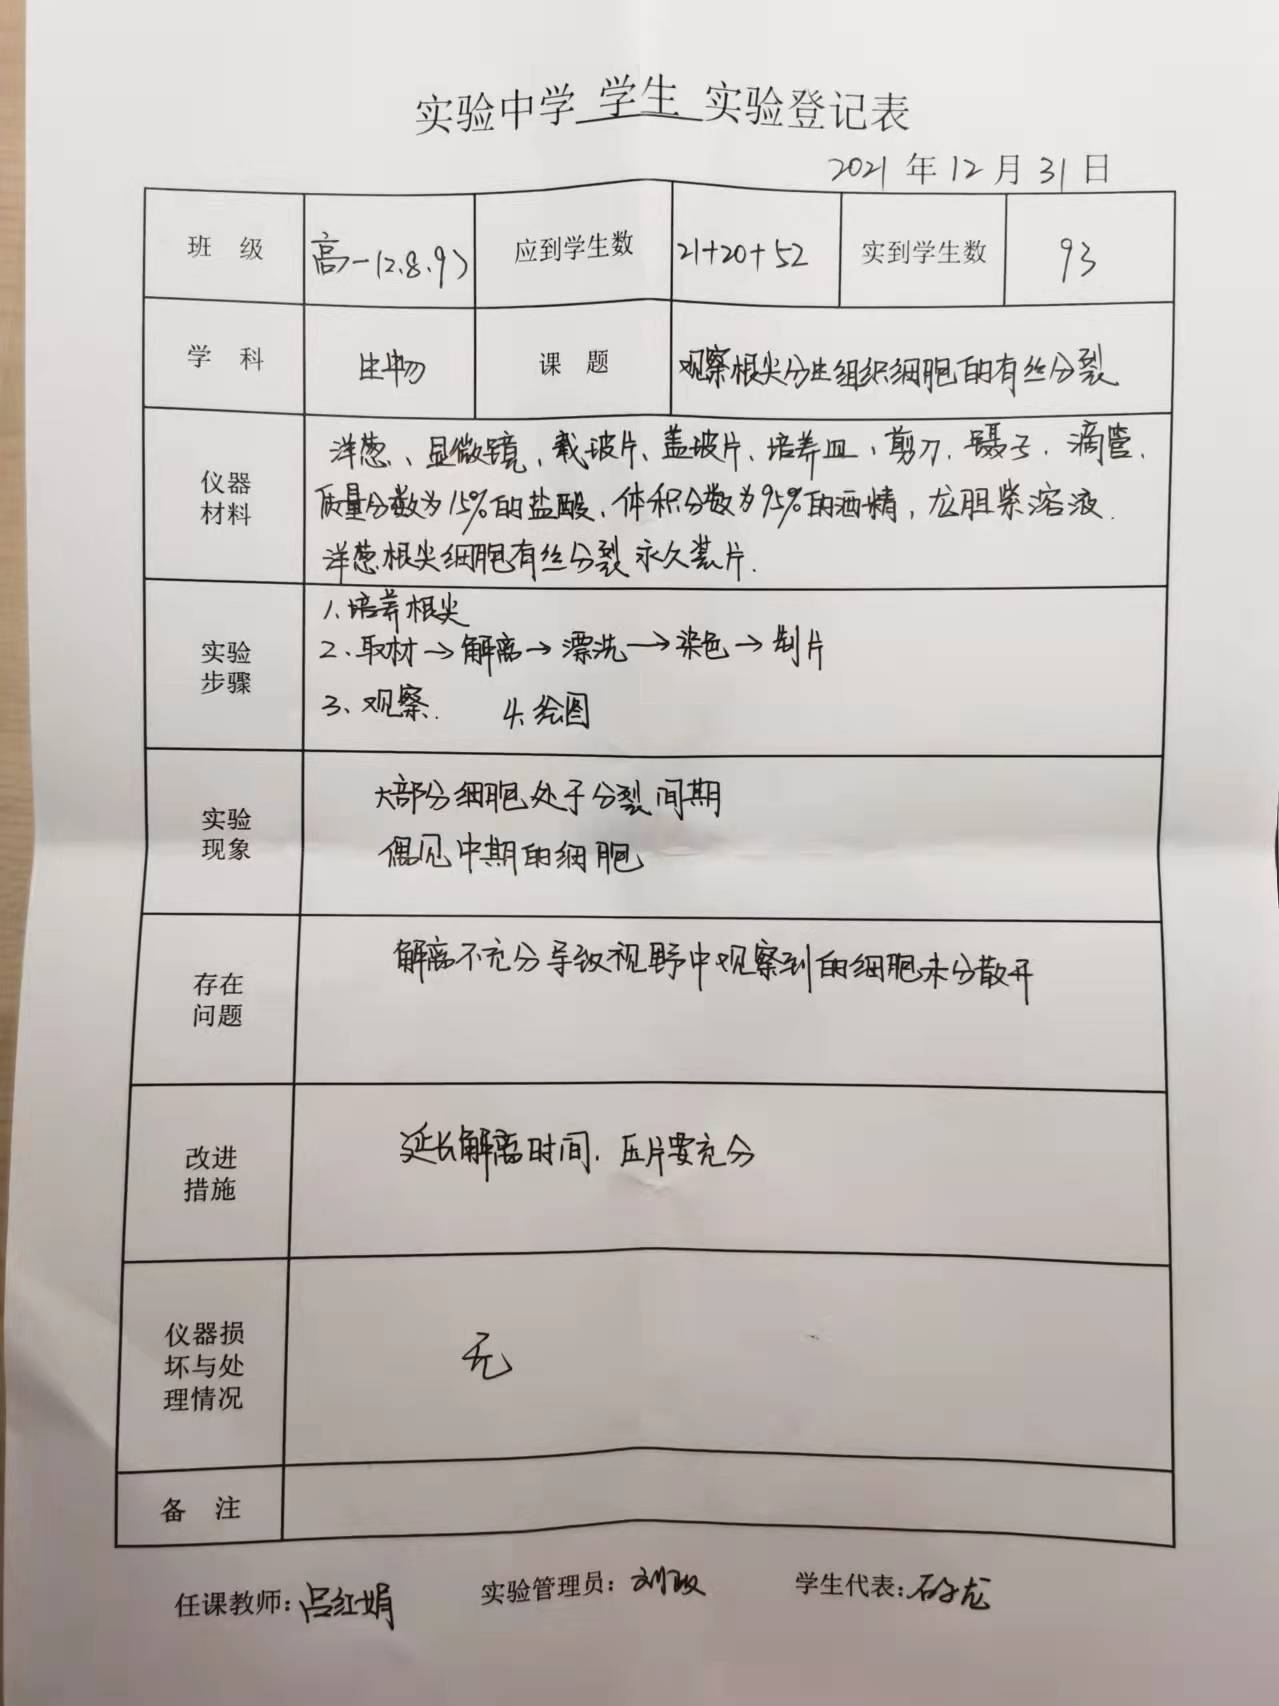 实验中学 学生 实验登记表
2021 年 12 月 31 日
班 级 高一(2.8.9) 应到学生数 21+20+52 实到学生数 93
学 科 生物 课 题 观察根尖分生组织细胞的有丝分裂
仪器材料
洋葱、显微镜、载玻片、盖玻片、培养皿、剪刀、镊子、滴管、
质量分数为15%的盐酸、体积分数为95%的酒精,龙胆紫溶液.
洋葱根尖细胞有丝分裂永久装片.
实验步骤
1.培养根尖
2.取材→解离→漂洗→染色→制片
3、观察. 4.绘图
实验现象
大部分细胞处于分裂间期
偶见中期的细胞
存在问题
解离不充分导致视野中观察到的细胞未分散开
改进措施
延长解离时间.压片要充分
仪器损坏与处理情况
无
备 注
任课教师:吕红娟 实验管理员:刘 学生代表:龙